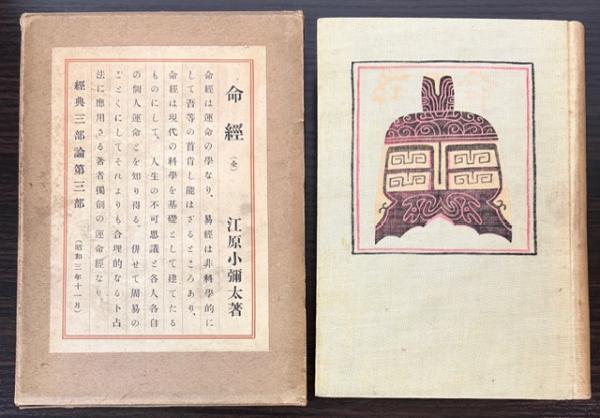 命經（全）
江原小彌太著
命經は運命の學なり、易經は非科學的に
して吾等の首肯し能はざるところあり、
命經は現代の科學を基礎として建てたる
ものにして、人生の不可思議と各人各自
の個人運命とを知り得る。併せて周易の
ごとくにしてそれよりも合理的なる卜占
法に應用さる著者獨創の運命經なり。
經典三部論第三部
（昭和三年十一月）